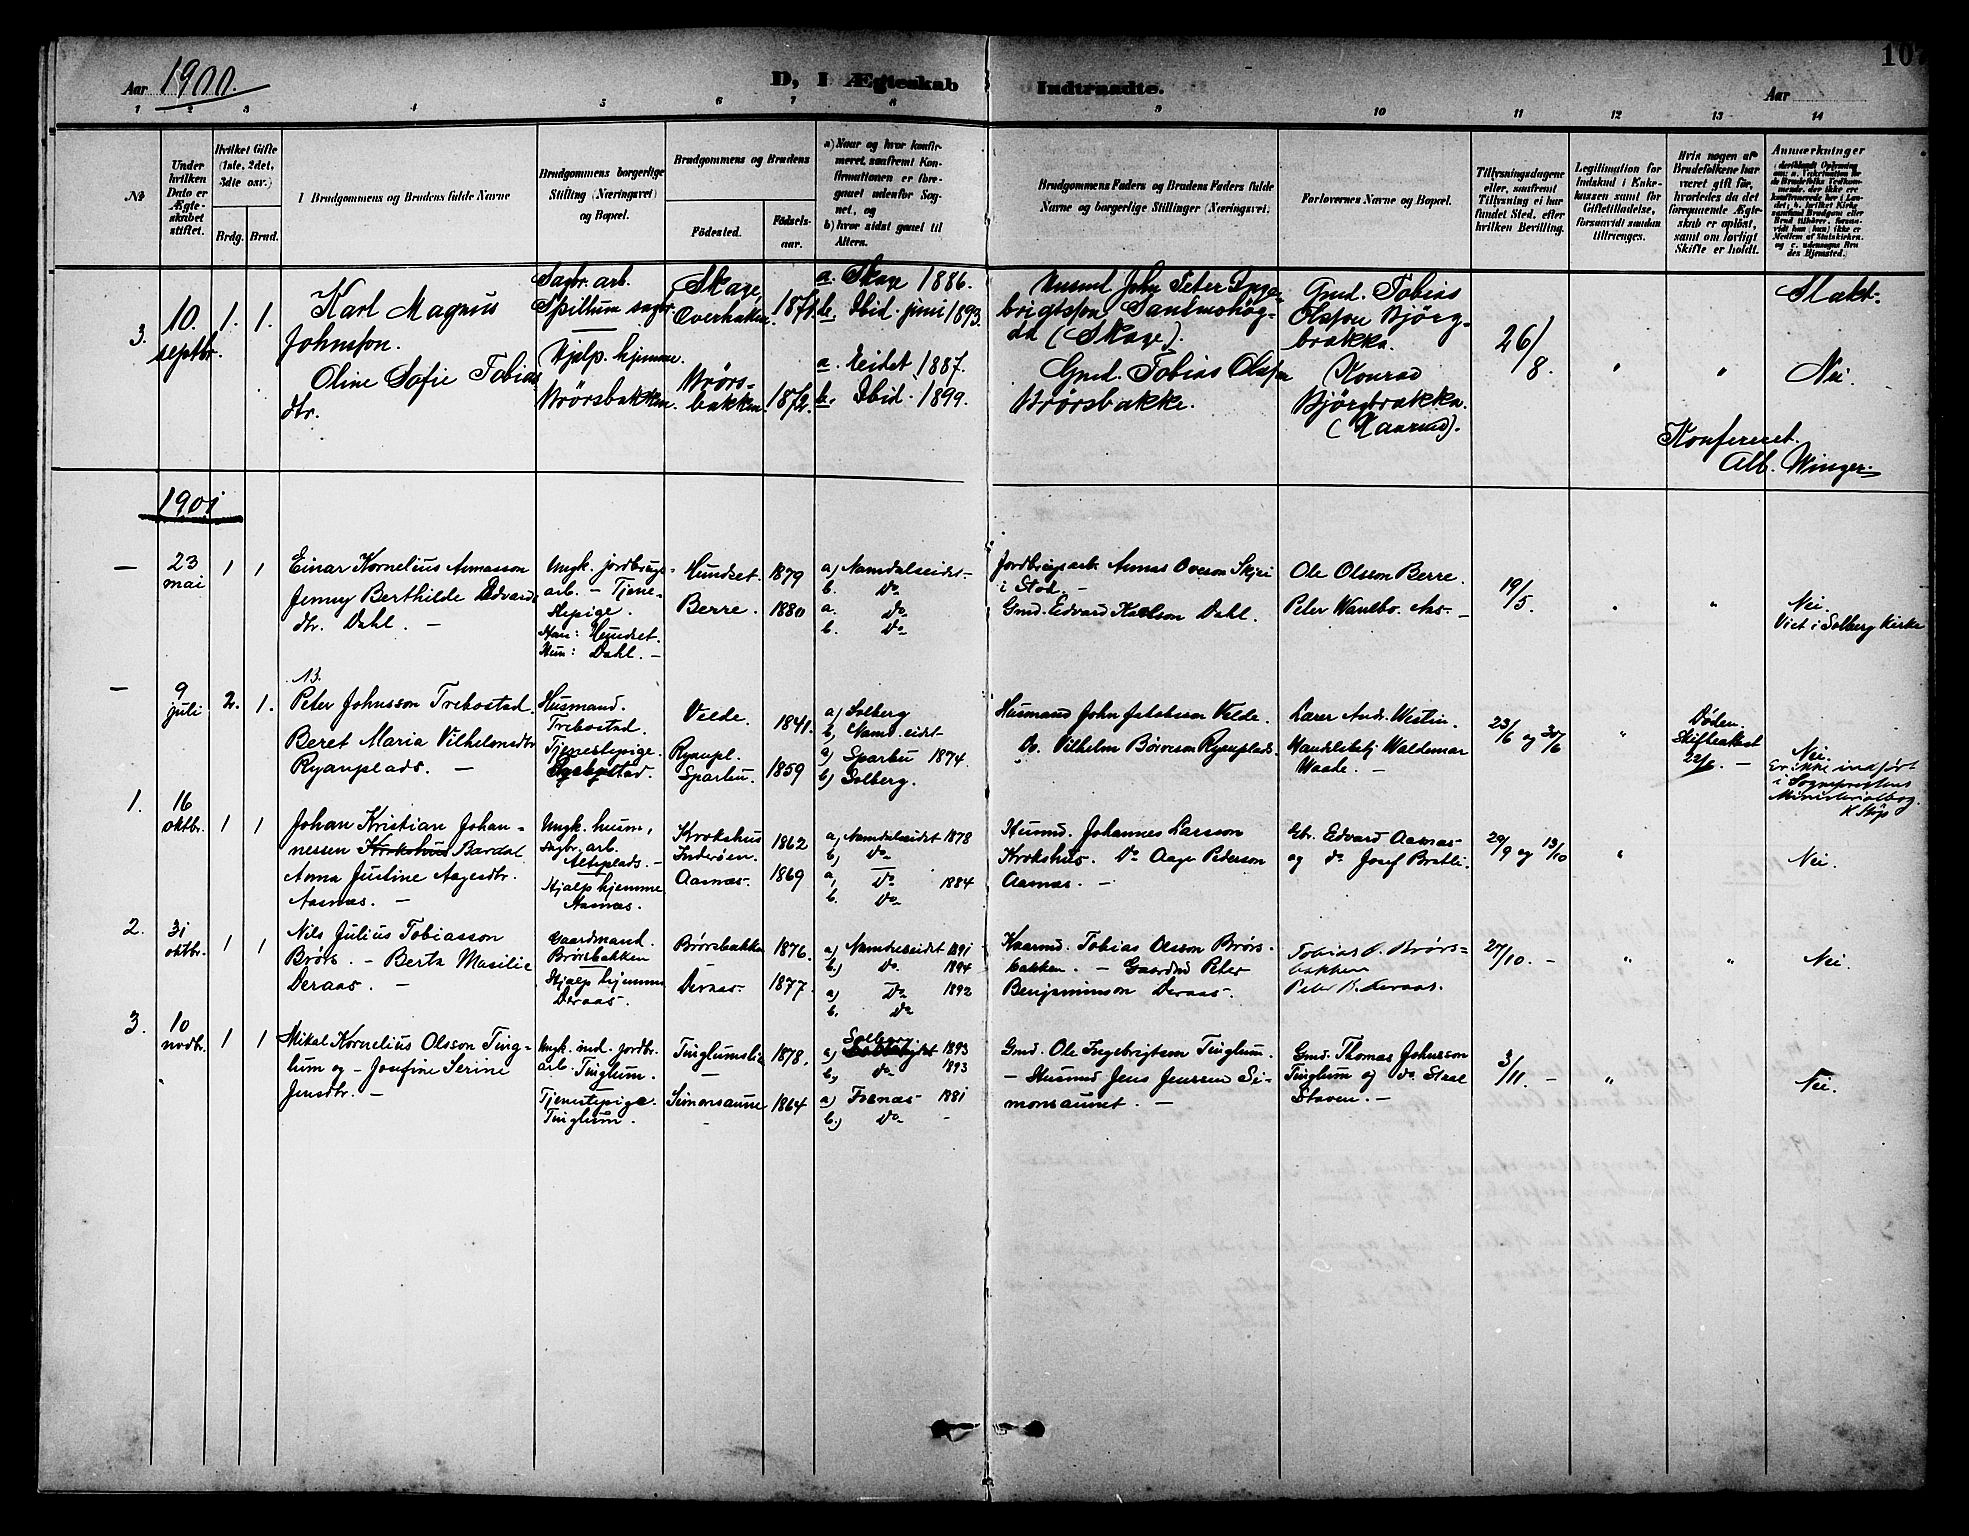 107
Aar 1900.
D, I Ægteskab Indtraadte.
Aar
1 2 3 4 5 6 7 8 9 10 11 12 13 14
No
Under hvilken Dato er Ægteskabet stiftet.
Hvilket Gifte (1ste, 2det, 3die osv.)
Brdg. Brud.
I Brudgommens og Brudens fulde Navne
Brudgommens borgerlige Stilling (Næringsvei) og Bopæl.
Brudgommens og Brudens
Fødested.
Fødselsaar.
a) Naar og hvor konfirmeret, saafremt Konfirmationen er foregaaet udenfor Sognet, og
b) hvor sidst gaaet til Alters.
Brudgommens Faders og Brudens Faders fulde Navne og borgerlige Stillinger (Næringsvei).
Forlovernes Navne og Bopæl.
Tillysningsdagene eller, saafremt Tillysning ei har fundet Sted, efter hvilken Bevilling.
Legitimation for Indskud i Enkekassen samt for Giftetilladelse, forsaavidt saadan tiltrænges.
Hvis nogen af Brudefolkene har været gift før, hvorledes da det foregaaende Ægteskab er opløst, samt om lovligt Skifte er holdt.
Anmærkninger
3.
10. septbr.
1. 1.
Karl Magnus
Johnsson.
Oline Sofie Tobias
dtr.
Sagbr. arb.
Spillum sagbr.
Hjælp. hjemme.
Brørsbakken.
Skage,
Overhalen.
Brørs-
bakken.
1871.
1872.
a. Skage 1886.
b. Ibid. juni 1893.
a. Eidet 1887.
b. Ibid. 1899.
Husmd. John Peter Inge-
brigtsson
(Skage).
Gmd. Tobias Olsson
Brørsbakke.
Gmd. Tobias
Olsson Bjørg-
brækka.
Konrad
Bjørgbrækka.
26/8.
" "
Nei.
Konfereret.
Alb. Winger.
1901
— 23 mai 1 1
Einar Kornelius Arnasson
Jenny Berthilde Edvards
dtr. Dahl. —
Ungk. jordbrugs-
arb. — Tjene-
stepige.
Han: Hundset.
Hun: Dahl. —
Hundset.
Berre.
1879
1880
a) Namdalseidet —
b. Do
a. Do
b. Do
Jordbrugsarb. Arnas Oveson Skjei
i Stod. —
Gmd. Edvard Karlson Dahl.
Ole Olsson Berre.
Peter Wanebo. Aas. —
19/5.
" "
Nei.
Viet i Solberg Kirke
— 9 juli 2. 1.
Peter Johnsson Trebostad.
Beret Maria Vilhelmsdtr
Ryanplads. —
Husmand.
Trebostad.
Tjenestepige.
Velde.
Ryanpl.
Sparbu.
1841.
1859
a) Solberg
b) Namd.eidet
a) Sparbu 1874.
b) Solberg.
Husmand John Jakobsson Velde.
Do. Vilhelm Ryanplads.
Lærer And. Westin.
Handelsbetj. Waldemar
Waade. —
23/6 og 30/6
"
Døden.
Skifteattest
22/6. —
Nei.
Er ikke indført
i Sogneprestens
Ministerialbog.
1.
16 oktbr. 1 1
Johan Kristian Johan-
nessen Krokshus Bardal
Anna Justine Aagesdtr.
Aasnæs. —
Ungk. husm,
sagbr. arb.
Hjælp hjemme
Aasnæs.
Krokshus
Inderøen.
Aasnæs.
1862
1869
a) Namdalseidet 1878
b) Do
a) Do 1884
b. Do
Husmd. Johannes Larsson
Krokshus. Do Aage Pederson
Aasnæs. —
Gbr. Edvard Aasnæs
og do Josef Bratli.
29/9 og 13/10
"
Nei.
2.
31 oktbr. 1 1
Nils Julius Tobiasson
Brørs. — Berta Masilie
Deraas. —
Gaardmand.
Brørsbakken
Hjælp hjemme
Deraas.
Brørsbakken
Deraas.
1876.
1877.
a) Namdalseidet 1891
b) Do. 1894
a) Do 1892
b. Do
Kaarmd. Tobias Olsson Brørs-
bakken. — Gaardmd Peter
Benjaminson Deraas.
Tobias O. Brørs-
bakken
Peter B. Deraas.
27/10. —
" "
Nei.
3.
10 novbr. 1 1
Mikal Kornelius Olsson Ting-
lum og — Josefine Serine
Jensdtr. —
Ungk. ind. jordbr.
arb. Tinglum.
Tjenestepige.
Tinglum.
Tinglumslia
Simonsaune
1878.
1864
Solberg
a) 1893
b) do 1893
a) Fosnæs 1881
b.) Do —
Gmd. Ole Ingebrigtsen Tinglum.
— Husmd Jens Jenssen Si-
monsaunet. —
Gmd. Thomas Johnsson
Tinglum og do
Staven. —
3/11. —
"
Nei.